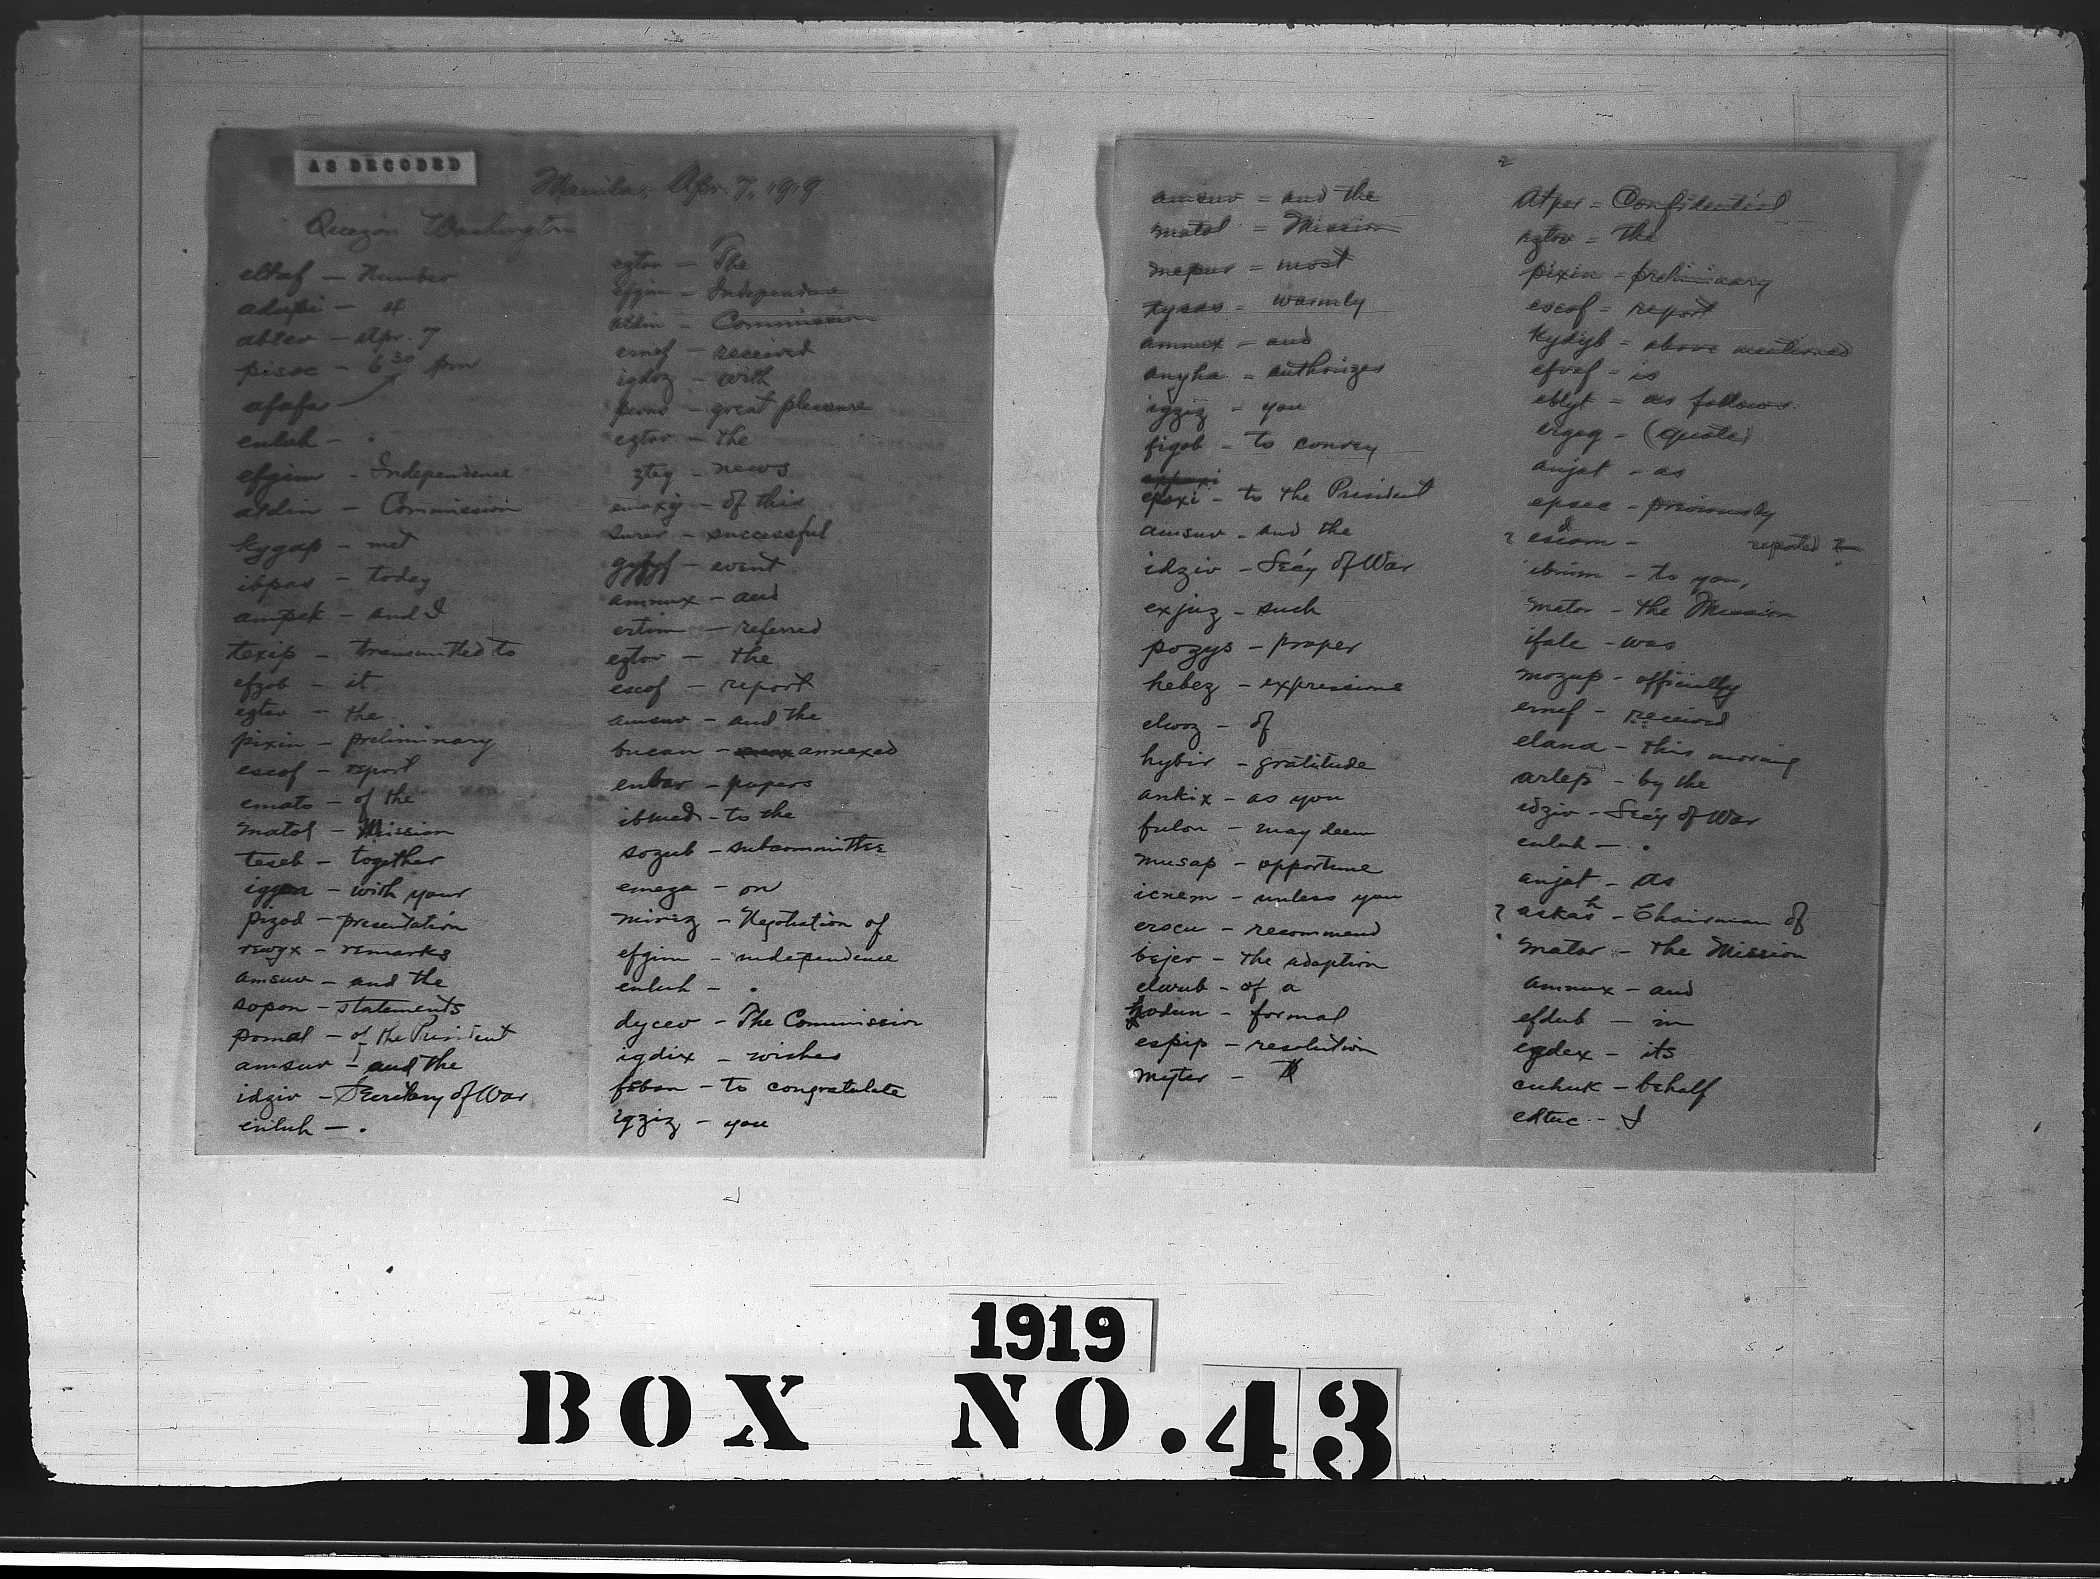 AS DECODED
Manila, Apr. 7, 1919
Quezon Washington
eltaf - Number
adupi - 4
abtev - Apr. 7
pisoc - 6 30 pm
afafa
enluh - .
efgim - Independence
atdin - Commission
kygap - met
ibpas - today
ampek - and I
texip - transmitted to
efzob - it
eztov - the
pixin - preliminary
escof - report
emato - of the
matol - Mission
teseb - together
iggon - with your
pizod - presentation
rewyx - remarks
amsuv - and the
sopon - statements
pomal - of the President
amsuv - and the
idziv - Secretary of War
enluh - .
eztov - The
efgim - Independence
atdin - Commission
ernef - received
igdoz - with
great pleasure
eztov - the
zteg - news
emaxy - of this
surer - successful
event
amnux - and
ertim - referred
eztov - the
escof - report
amsuv - and the
bucan - annexed
enbar - papers
ibmed - to the
sozub - subcommittee
emega - on
mirez - Negotiation of
efgim - independence
enluh - .
dycev - The Commission
igdix - wishes
feban - to congratulate
igziz - you
2
amsuv = and the
matol = Mission
mepur = most
tysas = warmly
amnux = and
anyha = authorizes
igziz - you
figob - to convey
epoxi - to the President
amsuv - and the
idziv - Sec'y of War
exjuz - such
pozys - proper
hebez - expressions
elwoz - of
hybir - gratitude
ankix - as you
fulon - may deem
musap - opportune
icnem - unless you
erocu - recommend
bejer - the adoption
elwub - of a
hodun - formal
espip - resolution
myter -
Atper = Confidential
eztov = the
pixin = preliminary
escof = report
kydyb = above mentioned
efvef - is
eblyt - as follows
ergeg - (quote)
anjat - as
epsec - previously
? esiom - reported ?
ibmim - to you,
mator - the Mission
ifale - was
mozup - officially
ernef - received
elana - this morning
arlep - by the
idziv - Sec'y of War
enluh - .
anjat - as
? askah - Chairman of
mator - the Mission
amnux - and
efdub - in
egdex - its
cuhuk - behalf
edtuc - I
1919
BOX NO. 43